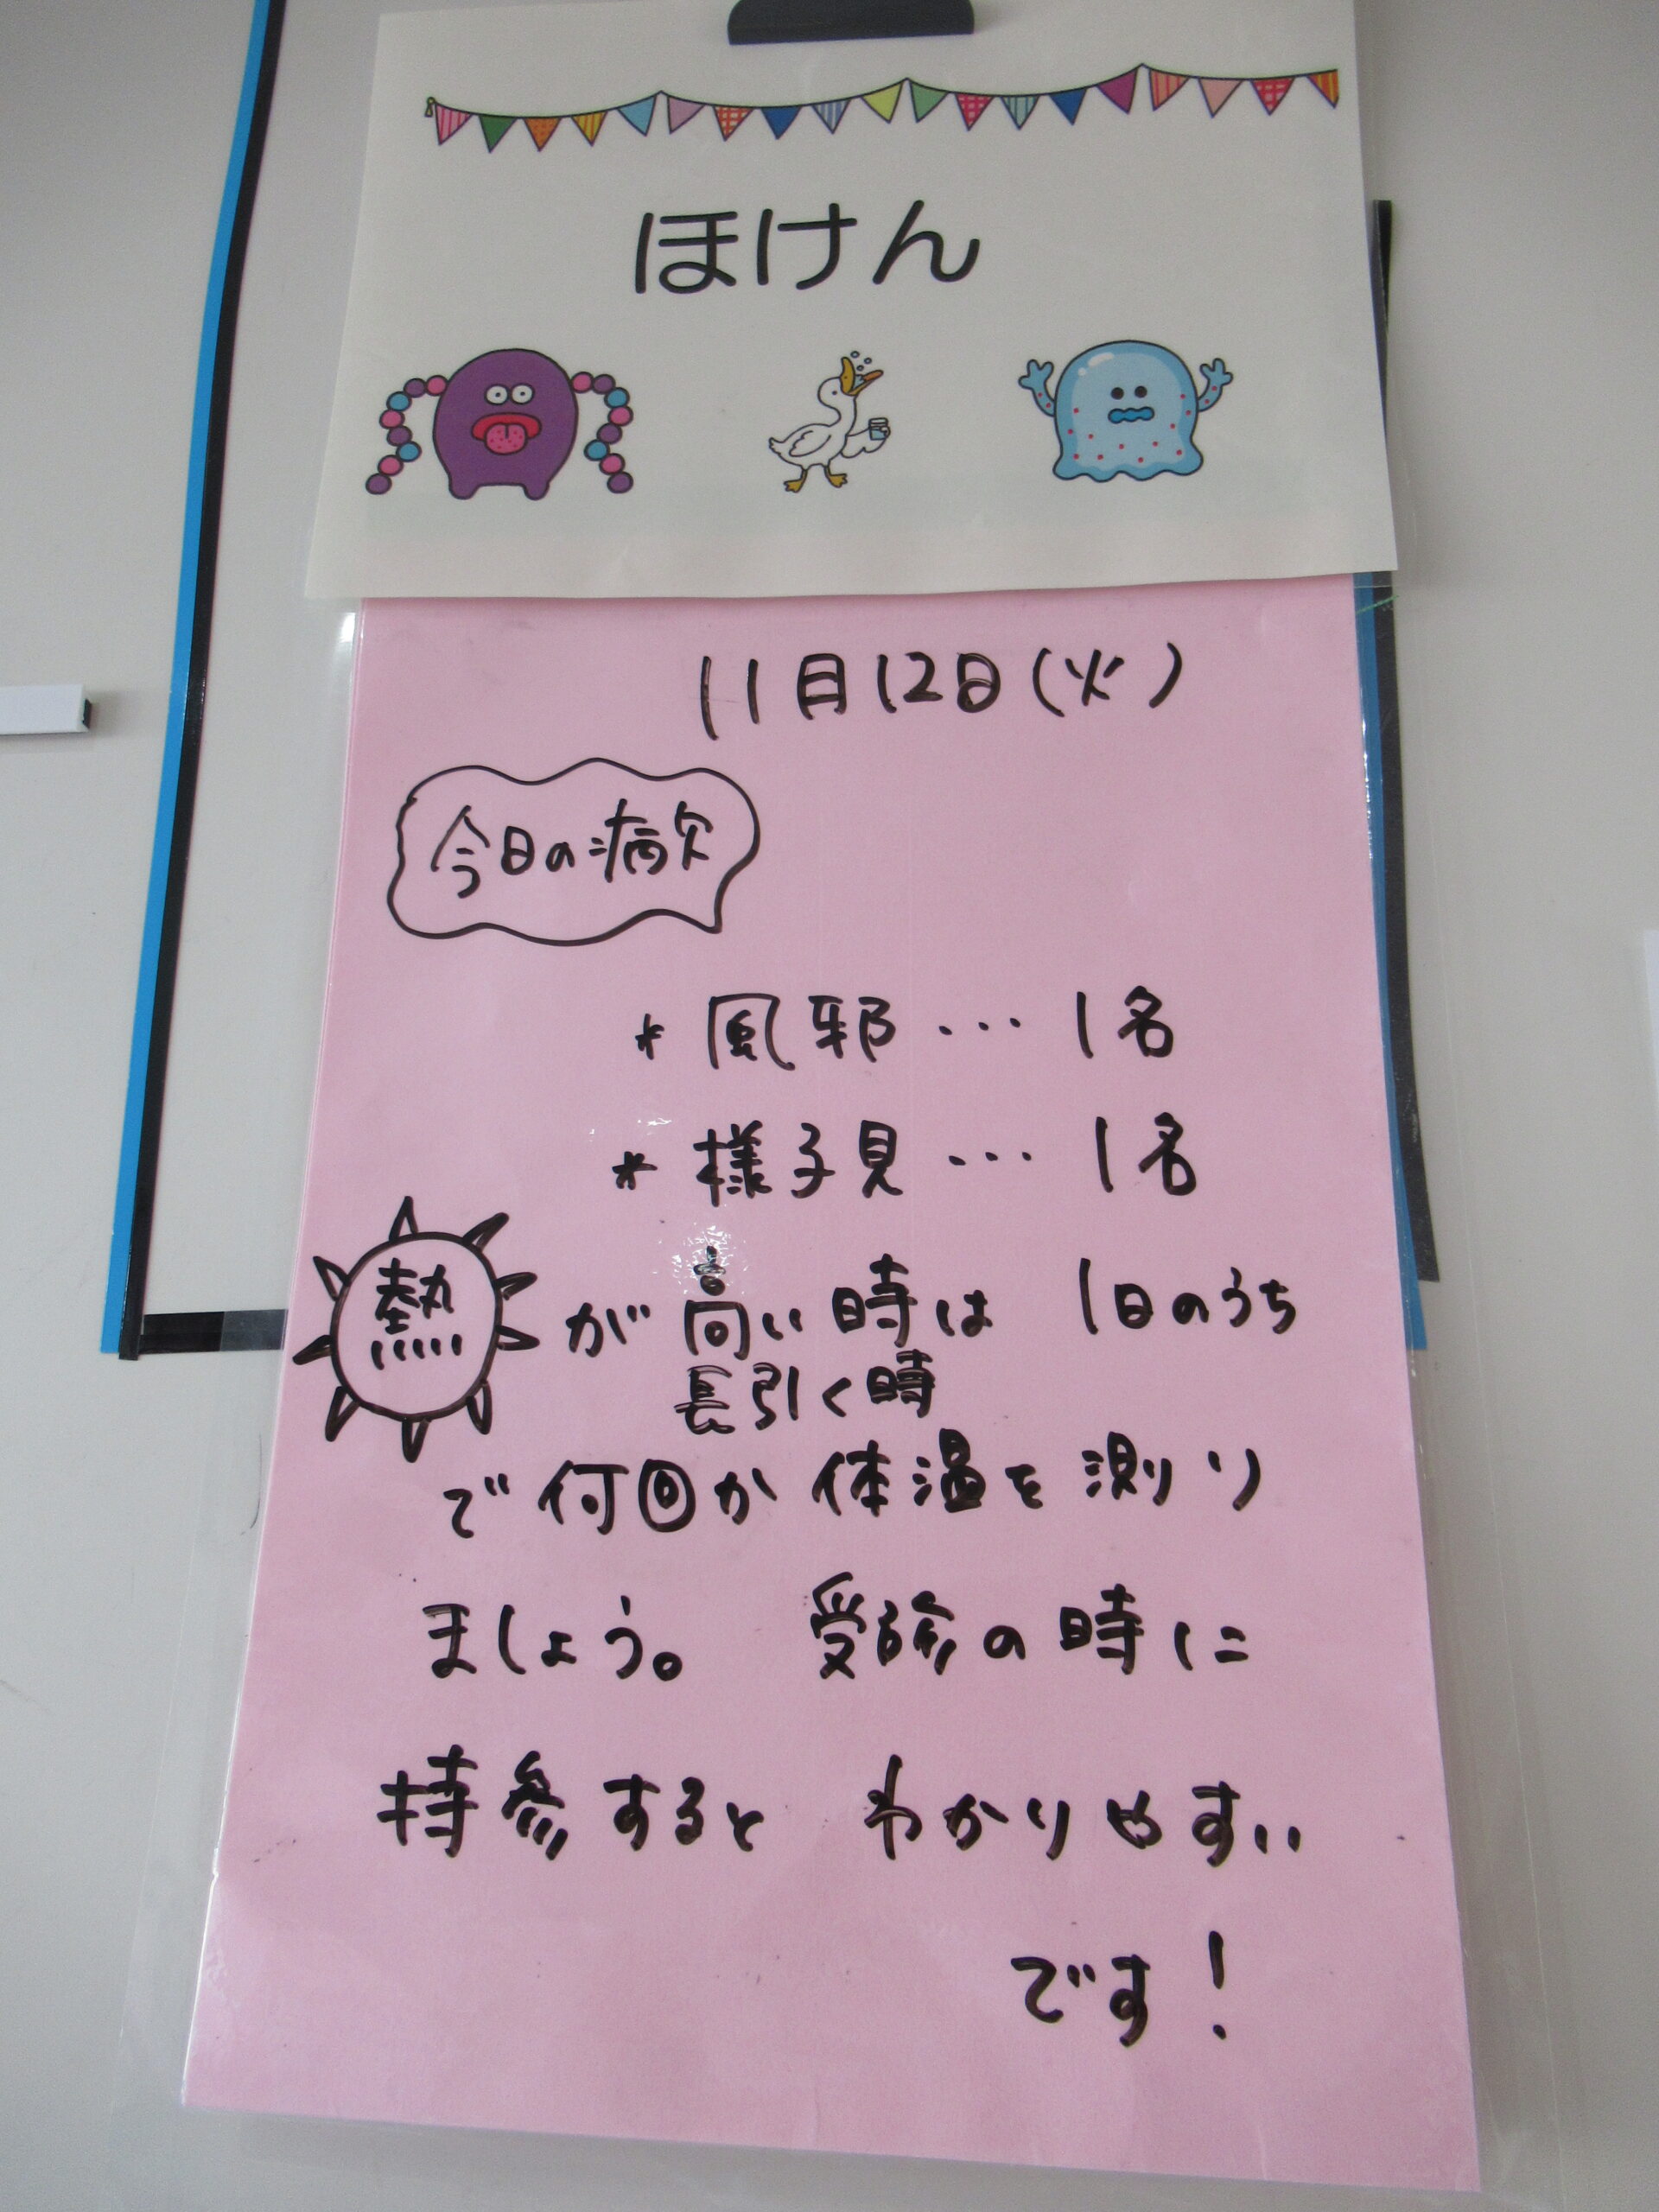 ほけん
11月12日(火)
今日の病欠
* 風邪… 1名
* 様子見… 1名
熱が高い時は 1日のうち
長引く時
で何回か体温を測り
ましょう。 受診の時に
持参すると わかりやすい
です!